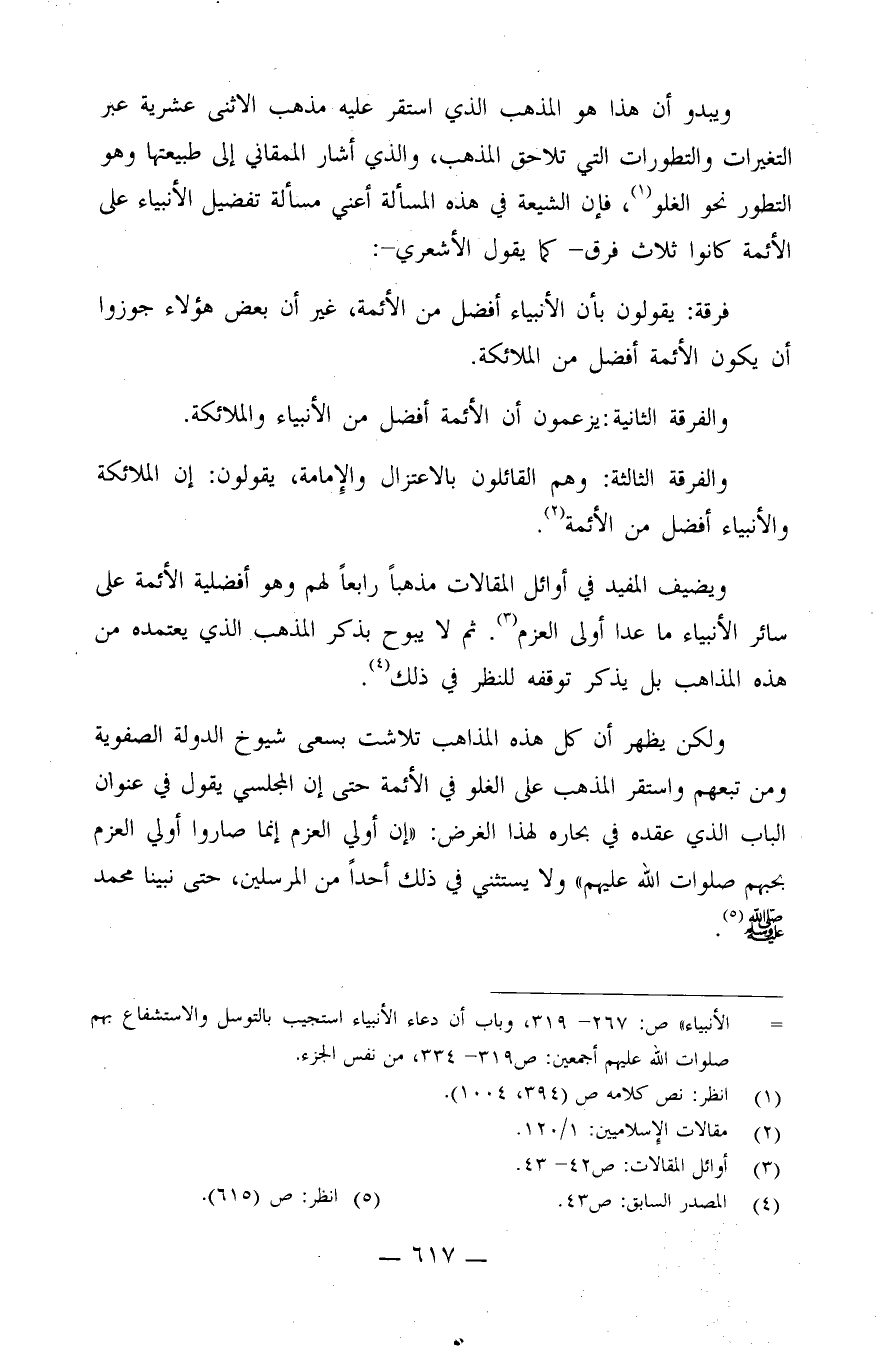 ويبدو أن هذا هو المذهب الذي استقر عليه مذهب الاثنى عشرية عبر
التغيرات والتطورات التي تلاحق المذهب، والذي أشار الممقاني إلى طبيعتها وهو
التطور نحو الغلو(١)، فإن الشيعة في هذه المسألة أعني مسألة تفضيل الأنبياء على
الأئمة كانوا ثلاث فرق– كما يقول الأشعري–:
فرقة: يقولون بأن الأنبياء أفضل من الأئمة، غير أن بعض هؤلاء جوزوا
أن يكون الأئمة أفضل من الملائكة.
والفرقة الثانية:يزعمون أن الأئمة أفضل من الأنبياء والملائكة.
والفرقة الثالثة: وهم القائلون بالاعتزال والإمامة، يقولون: إن الملائكة
والأنبياء أفضل من الأئمة(٢).
ويضيف المفيد في أوائل المقالات مذهباً رابعاً لهم وهو أفضلية الأئمة على
سائر الأنبياء ما عدا أولى العزم(٣). ثم لا يبوح بذكر المذهب الذي يعتمده من
هذه المذاهب بل يذكر توقفه للنظر في ذلك(٤).
ولكن يظهر أن كل هذه المذاهب تلاشت بسعى شيوخ الدولة الصفوية
ومن تبعهم واستقر المذهب على الغلو في الأئمة حتى إن المجلسي يقول في عنوان
الباب الذي عقده في بحاره لهذا الغرض: «إن أولي العزم إنما صاروا أولي العزم
بحبهم صلوات الله عليهم» ولا يستثني في ذلك أحداً من المرسلين، حتى نبينا محمد
ﷺ(٥).
= الأنبياء» ص: ٢٦٧– ٣١٩، وباب أن دعاء الأنبياء استجيب بالتوسل والاستشفاع بهم
صلوات الله عليهم أجمعين: ص٣١٩– ٣٣٤، من نفس الجزء.
(١) انظر: نص كلامه ص (٣٩٤، ١٠٠٤).
(٢) مقالات الإسلاميين: ١٢٠/١.
(٣) أوائل المقالات: ص٤٢– ٤٣.
(٤) المصدر السابق: ص٤٣. (٥) انظر: ص (٦١٥).
— ٦١٧ —